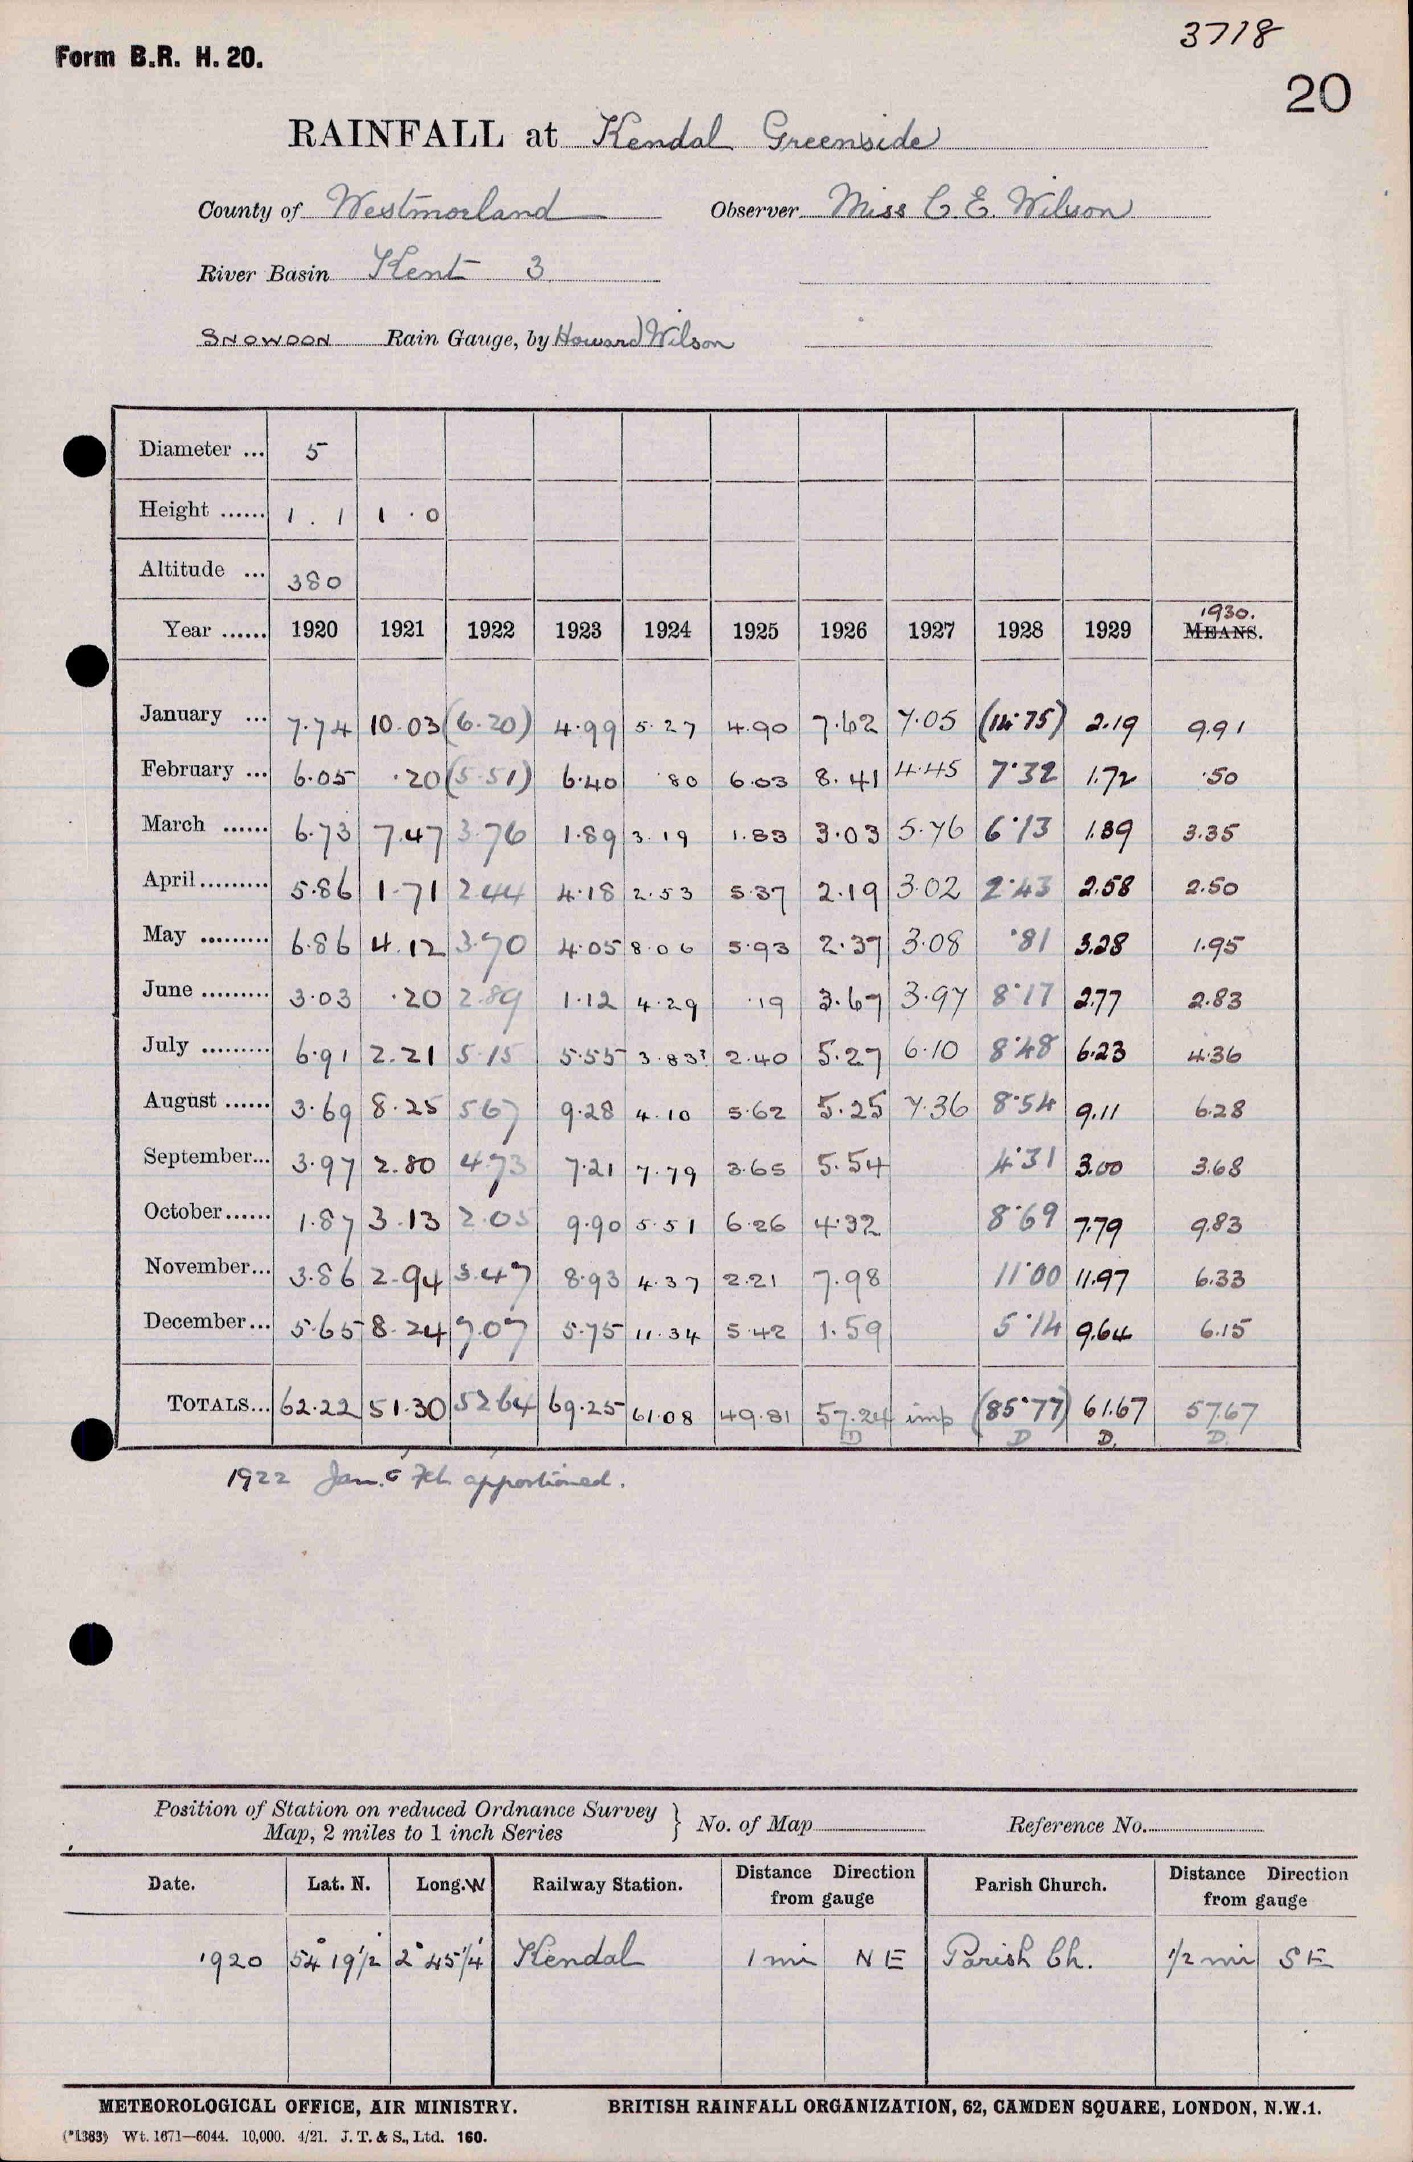 3718
Form B.R. H. 20.
20
RAINFALL at Kendal Greenside
County of Westmorland Observer Miss C. E. Wilson
River Basin Kent 3
SNOWDON Rain Gauge, by Howard Wilson
Diameter ... 5
Height ...... 1 . 1 1 . 0
Altitude ... 380
1930.
Year ...... 1920 1921 1922 1923 1924 1925 1926 1927 1928 1929 MEANS.
January ... 7.74 10.03 (6.20) 4.99 5.27 4.90 7.62 7.05 (14.75) 2.19 9.91
February ... 6.05 .20 (5.51) 6.40 .80 6.03 8.41 4.45 7.32 1.72 .50
March ...... 6.73 7.47 3.76 1.89 3.19 1.83 3.03 5.76 6.13 1.39 3.35
April......... 5.86 1.71 2.44 4.18 2.53 5.37 2.19 3.02 2.43 2.58 2.50
May ......... 6.86 4.12 3.70 4.05 8.06 5.93 2.37 3.08 .81 3.28 1.95
June ......... 3.03 .20 2.89 1.12 4.29 .19 3.67 3.97 8.17 2.77 2.83
July ......... 6.91 2.21 5.15 5.55 3.83? 2.40 5.27 6.10 8.48 6.23 4.36
August ...... 3.69 8.25 5.67 9.28 4.10 5.62 5.25 7.36 8.54 9.11 6.28
September... 3.97 2.80 4.73 7.21 7.79 3.65 5.54 4.31 3.00 3.68
October...... 1.87 3.13 2.05 9.90 5.51 6.26 4.32 8.69 7.79 9.83
November... 3.86 2.94 3.47 8.93 4.37 2.21 7.98 11.00 11.97 6.33
December... 5.65 8.24 7.07 5.75 11.34 5.42 1.59 5.14 9.64 6.15
TOTALS... 62.22 51.30 52.64 69.25 61.08 49.81 57.24 imp (85.77) 61.67 57.67
D D D. D.
1922 Jan. & Feb. apportioned.
Position of Station on reduced Ordnance Survey
Map, 2 miles to 1 inch Series } No. of Map Reference No.
Date. Lat. N. Long. W Railway Station. Distance Direction from gauge Parish Church. Distance Direction from gauge
1920 54° 19½' 2° 45¼' Kendal 1 mi NE Parish Ch. ½ mi SE
METEOROLOGICAL OFFICE, AIR MINISTRY. BRITISH RAINFALL ORGANIZATION, 62, CAMDEN SQUARE, LONDON, N.W.1.
(*1383) Wt. 1671—6044. 10,000. 4/21. J. T. & S., Ltd. 160.